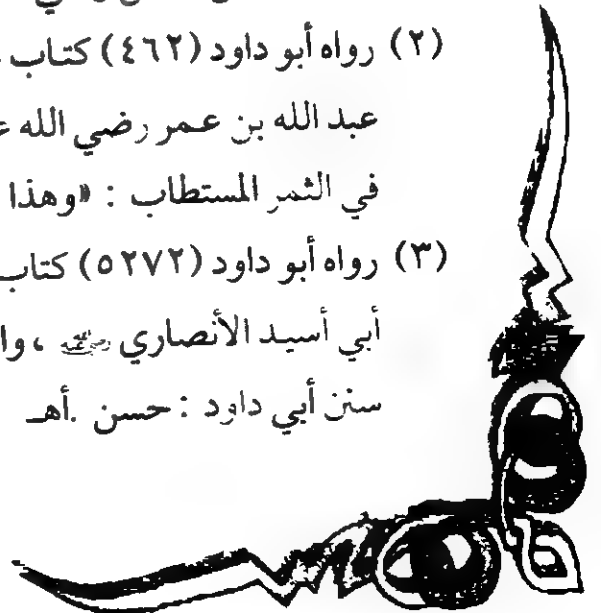 (٢) رواه أبو داود (٤٦٢) كتاب
عبد الله بن عمر رضي الله
في الثمر المستطاب : «وهذا
(٣) رواه أبو داود (٥٢٧٢) كتاب
أبي أسيد الأنصاري رضي الله عنه ، وا
سنن أبي داود : حسن .أهـ